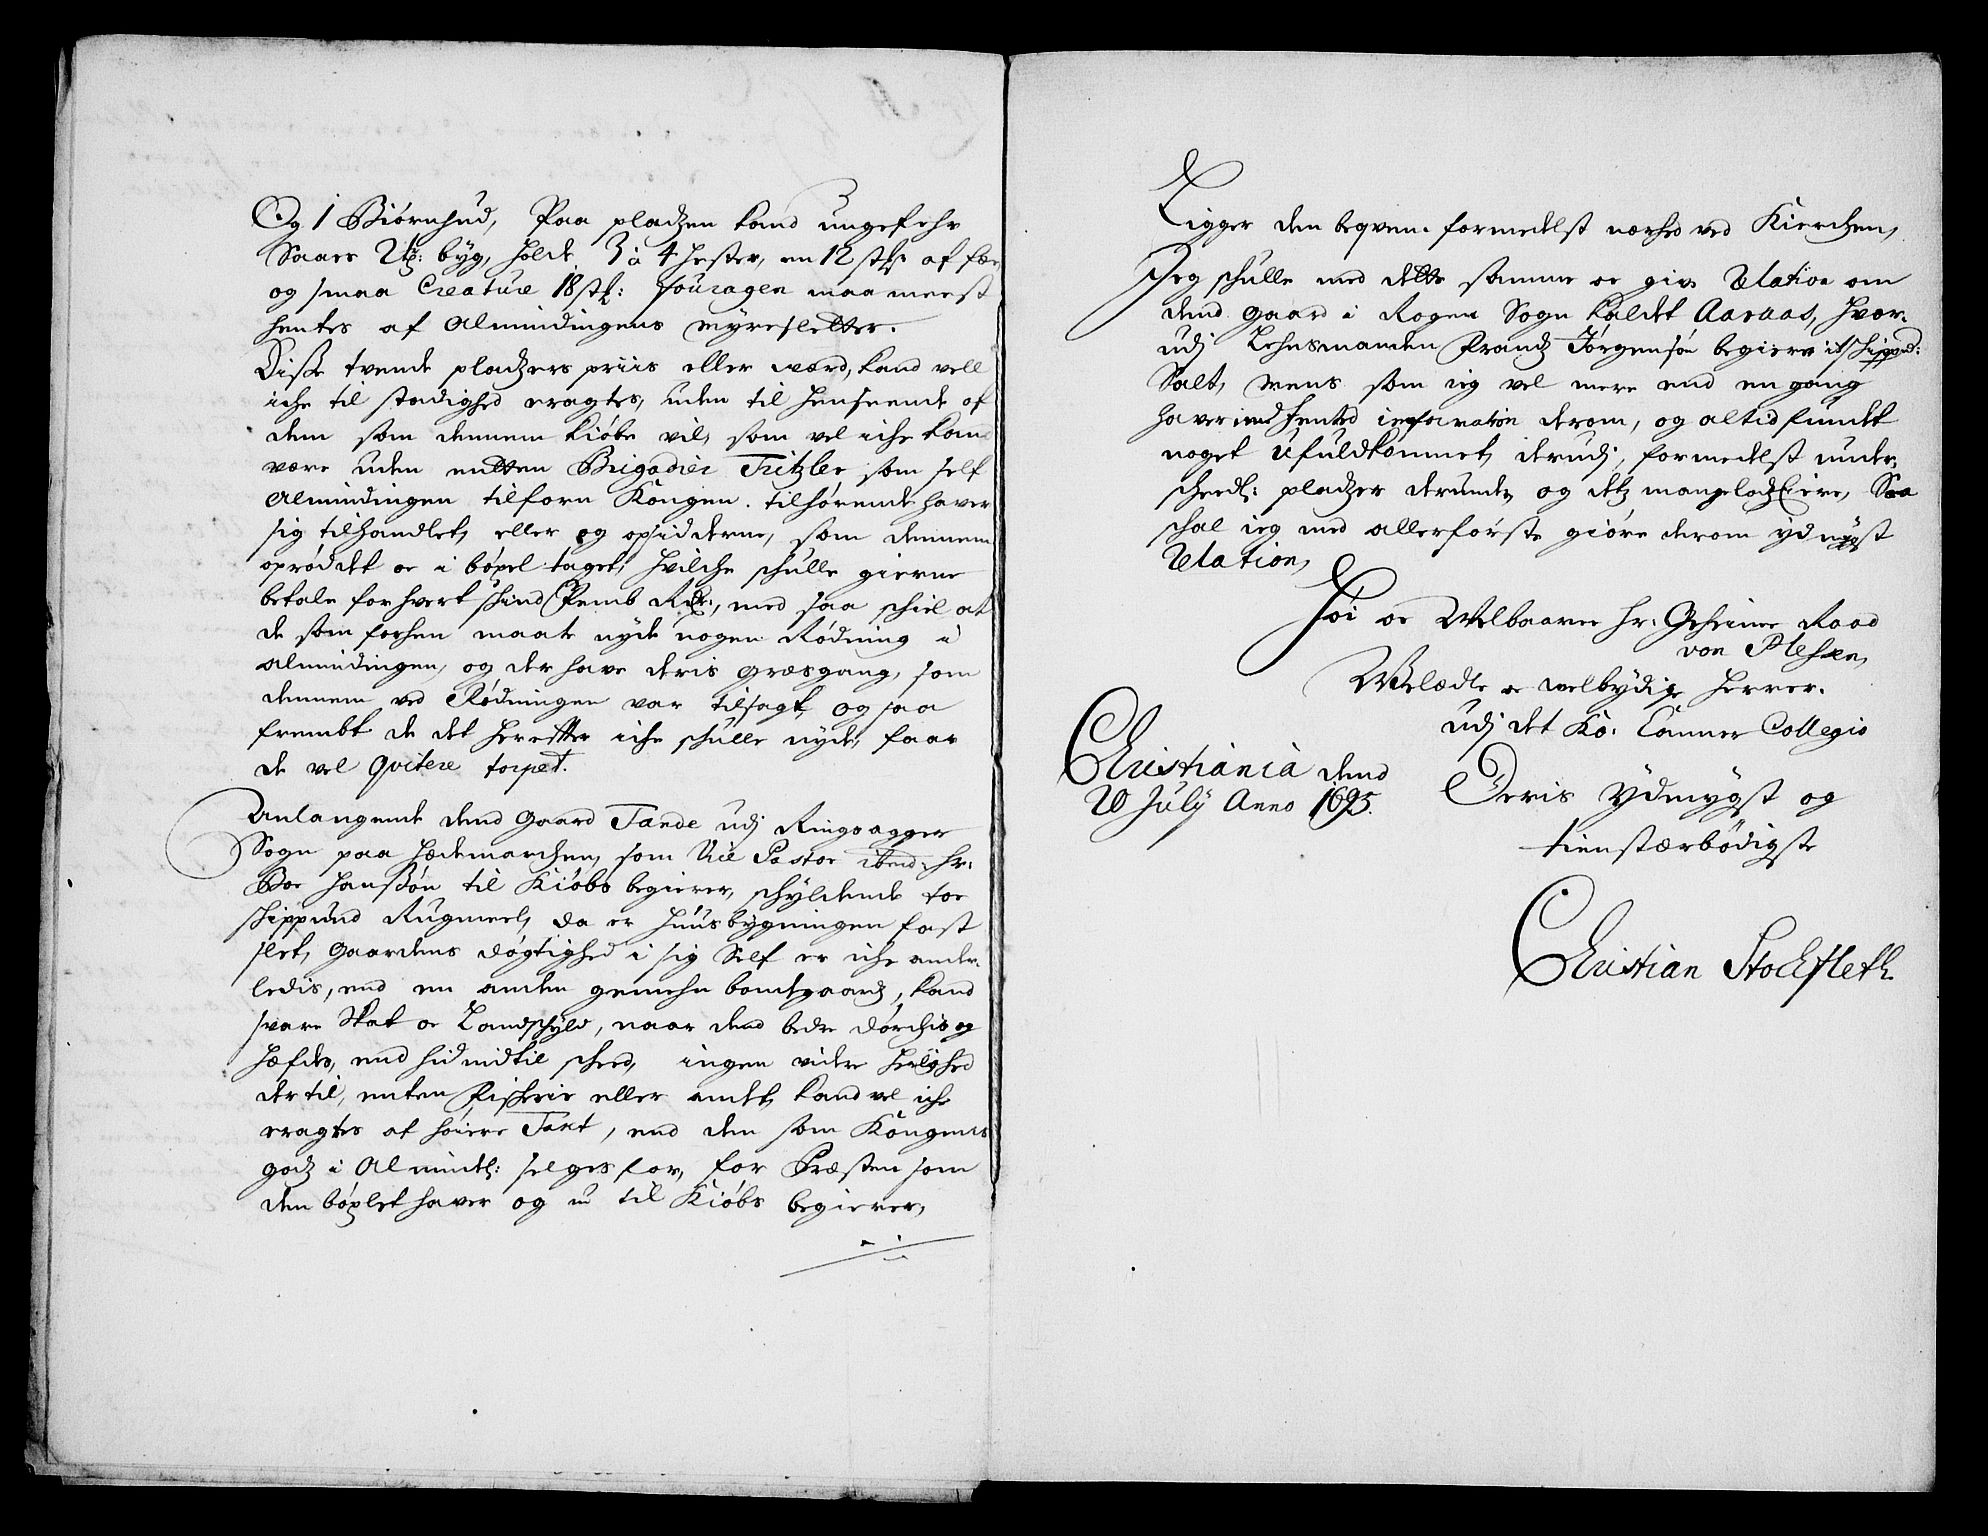 Og 1 Biörnhud, Paa pladzen kand ungefehr
Saaes 2 tr: byg, holde 3 à 4 hester, en 12 stkr af fæ
og smaa Creature 18 stk: fouragen maa meest
hentes af Almindingens myresletter.
Disse tvende pladzers priis eller værd, kand vell
iche til stadighed eragtes, uden til henseende af
dem som dennem kiöbe vil, som vel iche kand
være uden endten Brigadier Tritzler, som self
Almindingen tilforn Kongen tilhörende haver
sig tilhandlet, eller og opsidderne, som dennem
opröddet oc i böxel taget, hvilche schulle gierne
betale for hvert schind femb Rdr:, med saa schiel at
de som forhen maate nyde nogen Rödning i
Almindingen, og der have deris græsgang, som
dennem ved Rödningen var tilsagt, og saa
frembt de det herefter iche schulle nyde, faar
de vel qvitere torpet.
Anlangende dend Gaard Tande udj Ringsagger
Sogn paa Hedemarchen, som Vice Pastor ibend: hr:
Boe Hanssön til Kiöbs begierer, schyldende toe
schippund Rugmeel, da er huusbygningen fast
slet, Gaardens dögtighed i sig Self er iche ander-
ledis, end en anden gemehn bondegaard, kand
svare Skat oc Landschyld, naar dend bedre dörchis og
hæfdes, end hid indtil scheed, ingen videre herlighed
dertil, enten fischerie eller andet, kand vel iche
eragtes at höiere Taxt, end den som Kongens
godz i Almindl: selges for, for Præsten som
den böxlet haver og nu til Kiöbs begierer,
Ligger den beqvem formedelst nærhed ved Kierchen,
Jeg schulle med dette samme oc give Relation om
dend gaard i Rogen Sogn kaldet Aaraas, hvor-
udj Lehnsmanden Frandz Jörgensön begierer it schippund:
Salt, mens som ieg vel mere end en gang
haver indhented information derom, og altid fundet
noget ufuldkommet derudj, formedelst under-
scheedl: pladzer derunder og detz mange lodz Eiere, Saa
schal ieg med allerförste giöre derom ydmygst
Relation,
Höi oc Welbaarne Hr. Geheime Raad
von Plessen,
Welædle oc welbyrdige Herrer.
udj det Ko: Cammer Collegio
Christiania dend
20 July Anno 1695.
Deris ydmygst og
tienstærbödigste
Christian Stochfleth